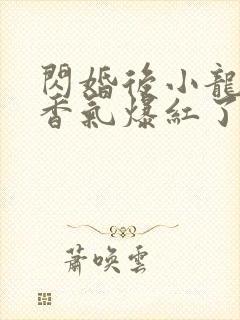 閃婚後小龍
香氣爆紅了
蕭喚雲